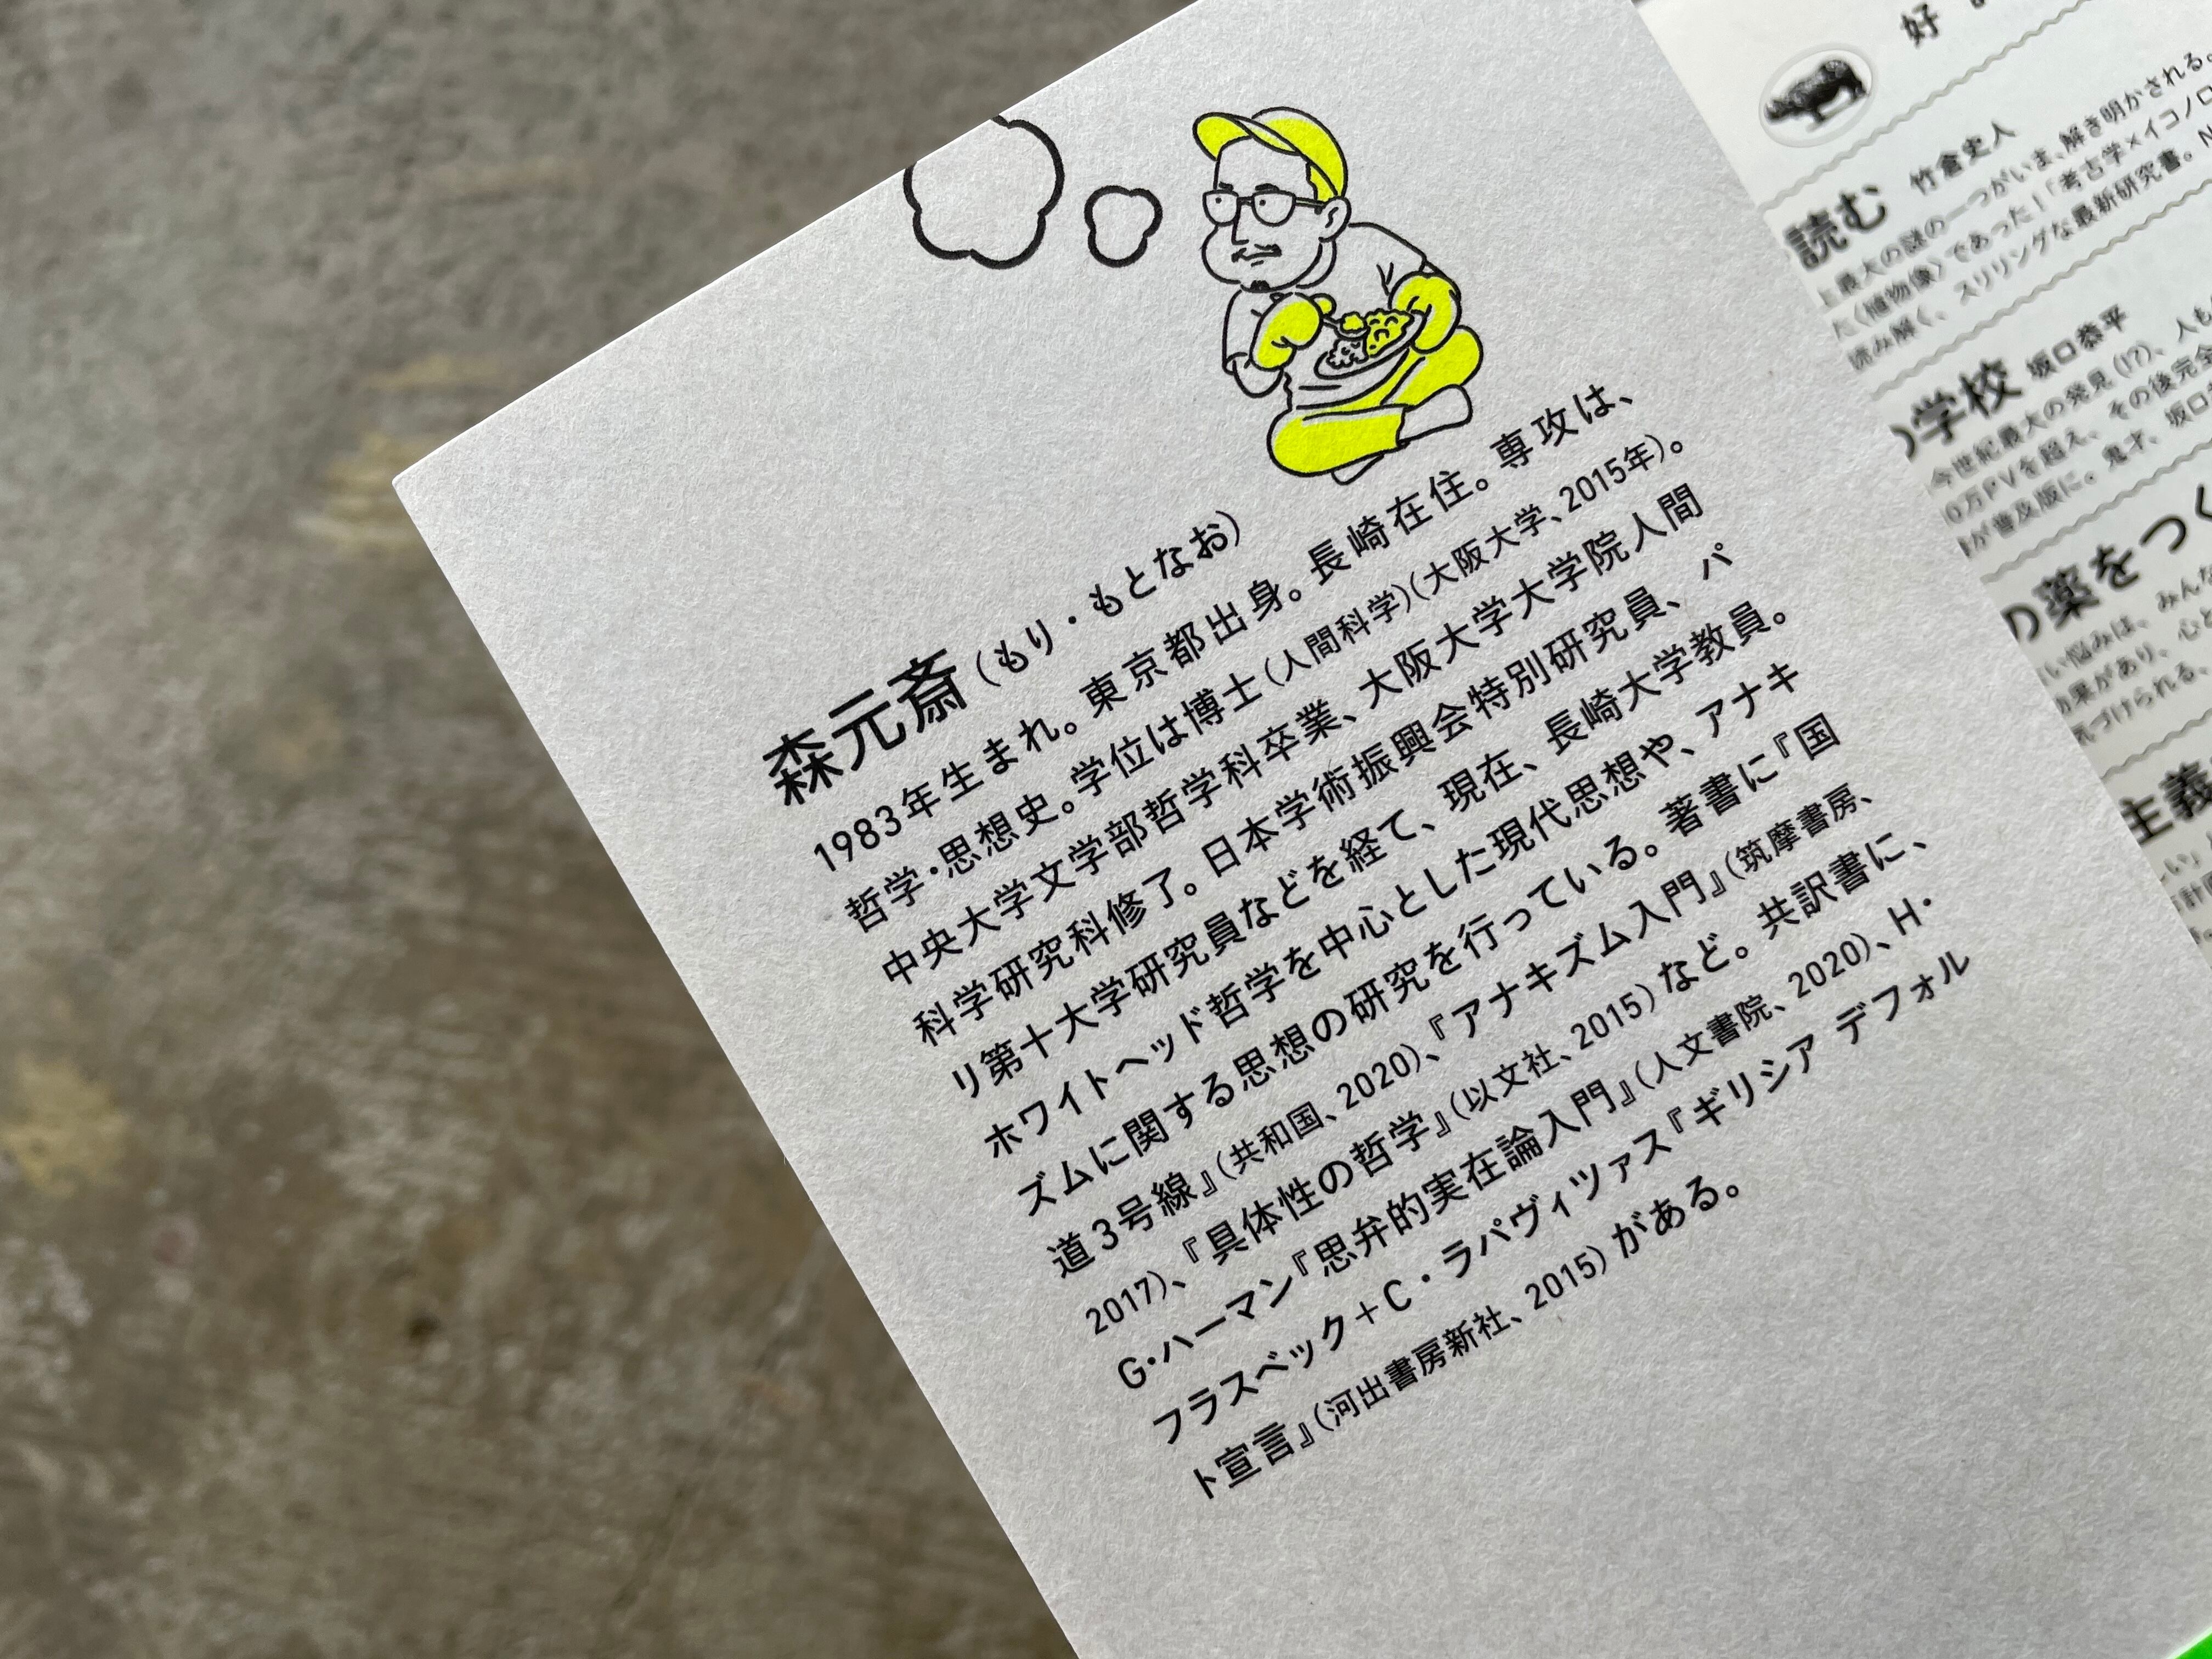 森元斎（もり・もとなお）
1983年生まれ。東京都出身。長崎在住。専攻は、
哲学・思想史。学位は博士（人間科学）（大阪大学、2015年）。
中央大学文学部哲学科卒業、大阪大学大学院人間
科学研究科修了。日本学術振興会特別研究員、パ
リ第十大学研究員などを経て、現在、長崎大学教員。
ホワイトヘッド哲学を中心とした現代思想や、アナキ
ズムに関する思想の研究を行っている。著書に『国
道3号線』（共和国、2020）、『アナキズム入門』（筑摩書房、
2017）、『具体性の哲学』（以文社、2015）など。共訳書に、
G・ハーマン『思弁的実在論入門』（人文書院、2020）、H・
フラスベック＋C・ラパヴィツァス『ギリシア デフォル
ト宣言』（河出書房新社、2015）がある。
好
読む 竹倉史人
上最大の謎の一つがいま、解き明かされる。
た〈植物像〉であった！「考古学×イコノロ
読み解く、スリリングな最新研究書。N
の学校 坂口恭平
今世紀最大の発見（!?）、人も
0万PVを超え、その後完全
が普及版に。鬼才、坂口
の薬をつく
い悩みは、みんな
効果があり、心と
気づけられる、
主義